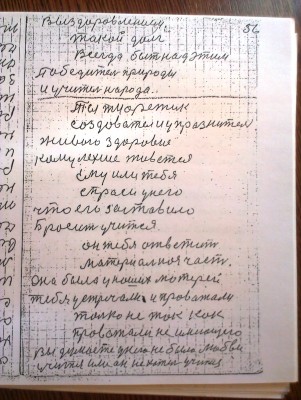 выздоровлением, 56
такой долг
Всегда быть над этим
победител природы
и учител народа.
Ты туаретик
создовател и празнител
живого здоровие
кому лехше живется
ему или тебя
спраси унего
что его заставило
бросит учится.
он тебя ответит
материалная част.
она была у наших матерей
тебя устречали и проважали
толко не так как
проважали не имающего
вы думаете унего не было любви
учится или он не хотел учится